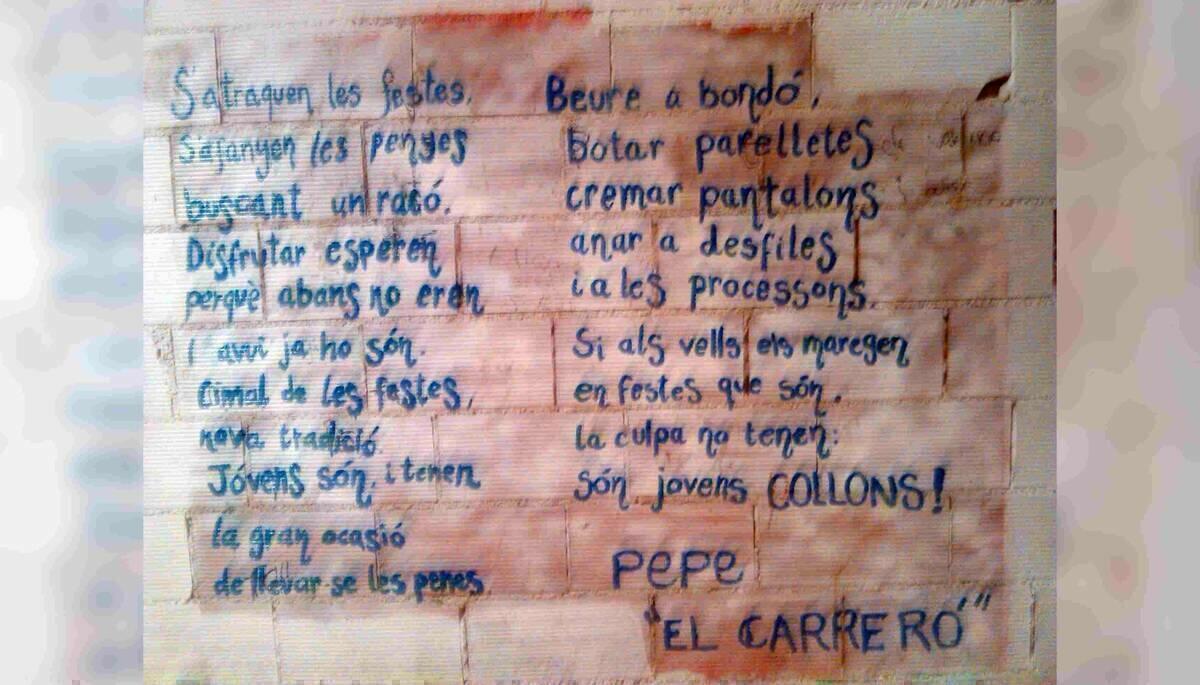 S'atraquen les festes,
S'afanyen les penyes
buscant un racó.
Disfrutar esperen
perquè abans no eren
i avui ja ho són.
Cimal de les festes,
nova tradició
Jóvens són, i tenen
la gran ocasió
de llevar-se les penes.
Beure a bondó,
botar parelletes
cremar pantalons
anar a desfiles
i a les processons.
Si als vells els maregen
en festes que són,
la culpa no tenen:
són jovens COLLONS!
PEPE
"EL CARRERÓ"